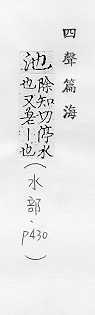 四聲篇海
池 除知切停水
也又姜丨也
(水部·p430)